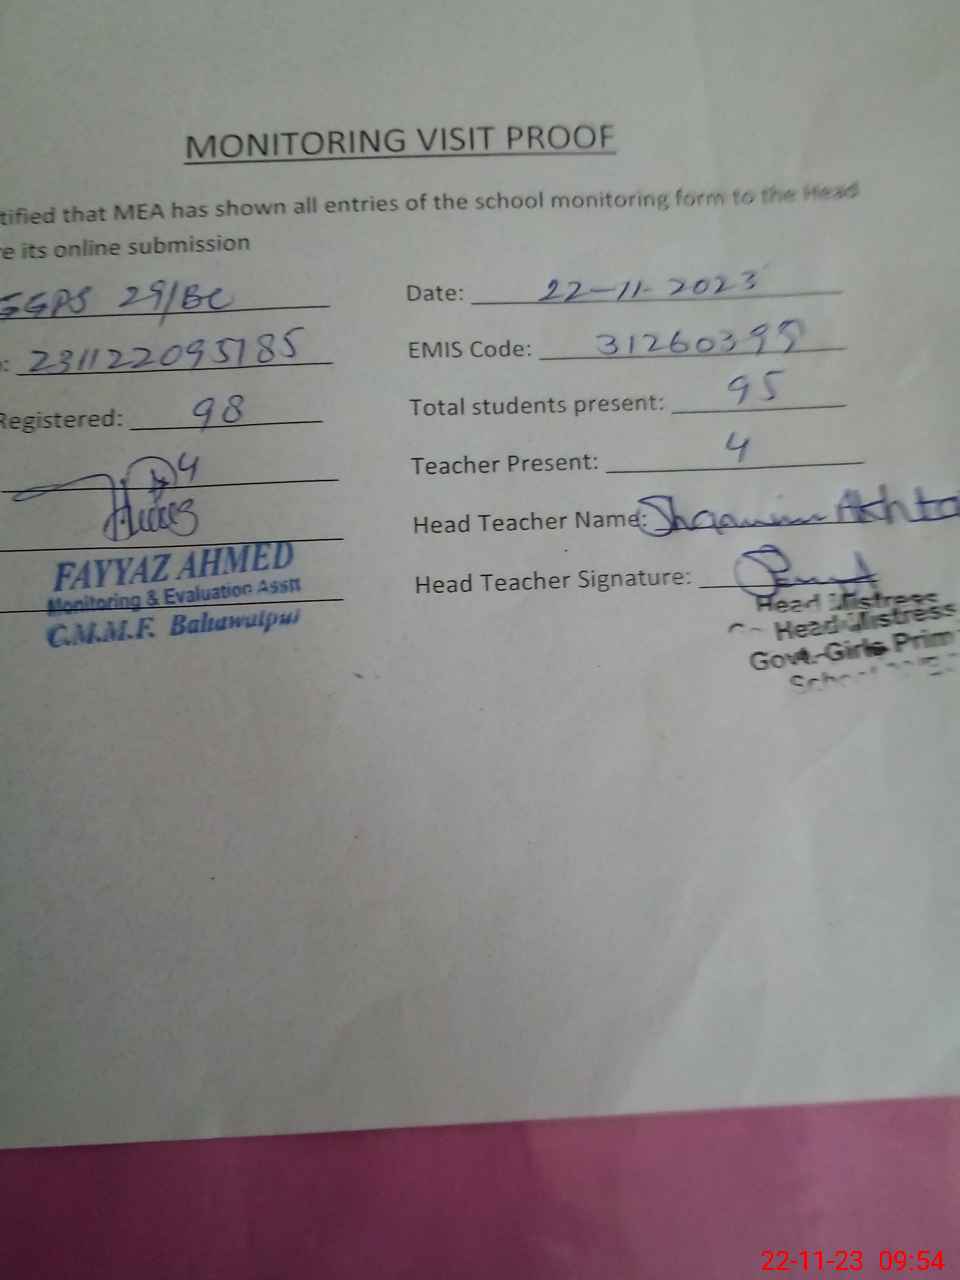 MONITORING VISIT PROOF
tified that MEA has shown all entries of the school monitoring form to the Head
re its online submission
GGPS 29/BC Date: 22-11-2023
: 231122095185 EMIS Code: 31260395
Registered: 98 Total students present: 95
4 Teacher Present: 4
Head Teacher Name: Shamim Akhta
FAYYAZ AHMED Head Teacher Signature:
Monitoring & Evaluation Asstt
C.M.M.F. Bahawalpur
Head Mistress
Head Mistress
Govt. Girls Prim
School
22-11-23 09:54